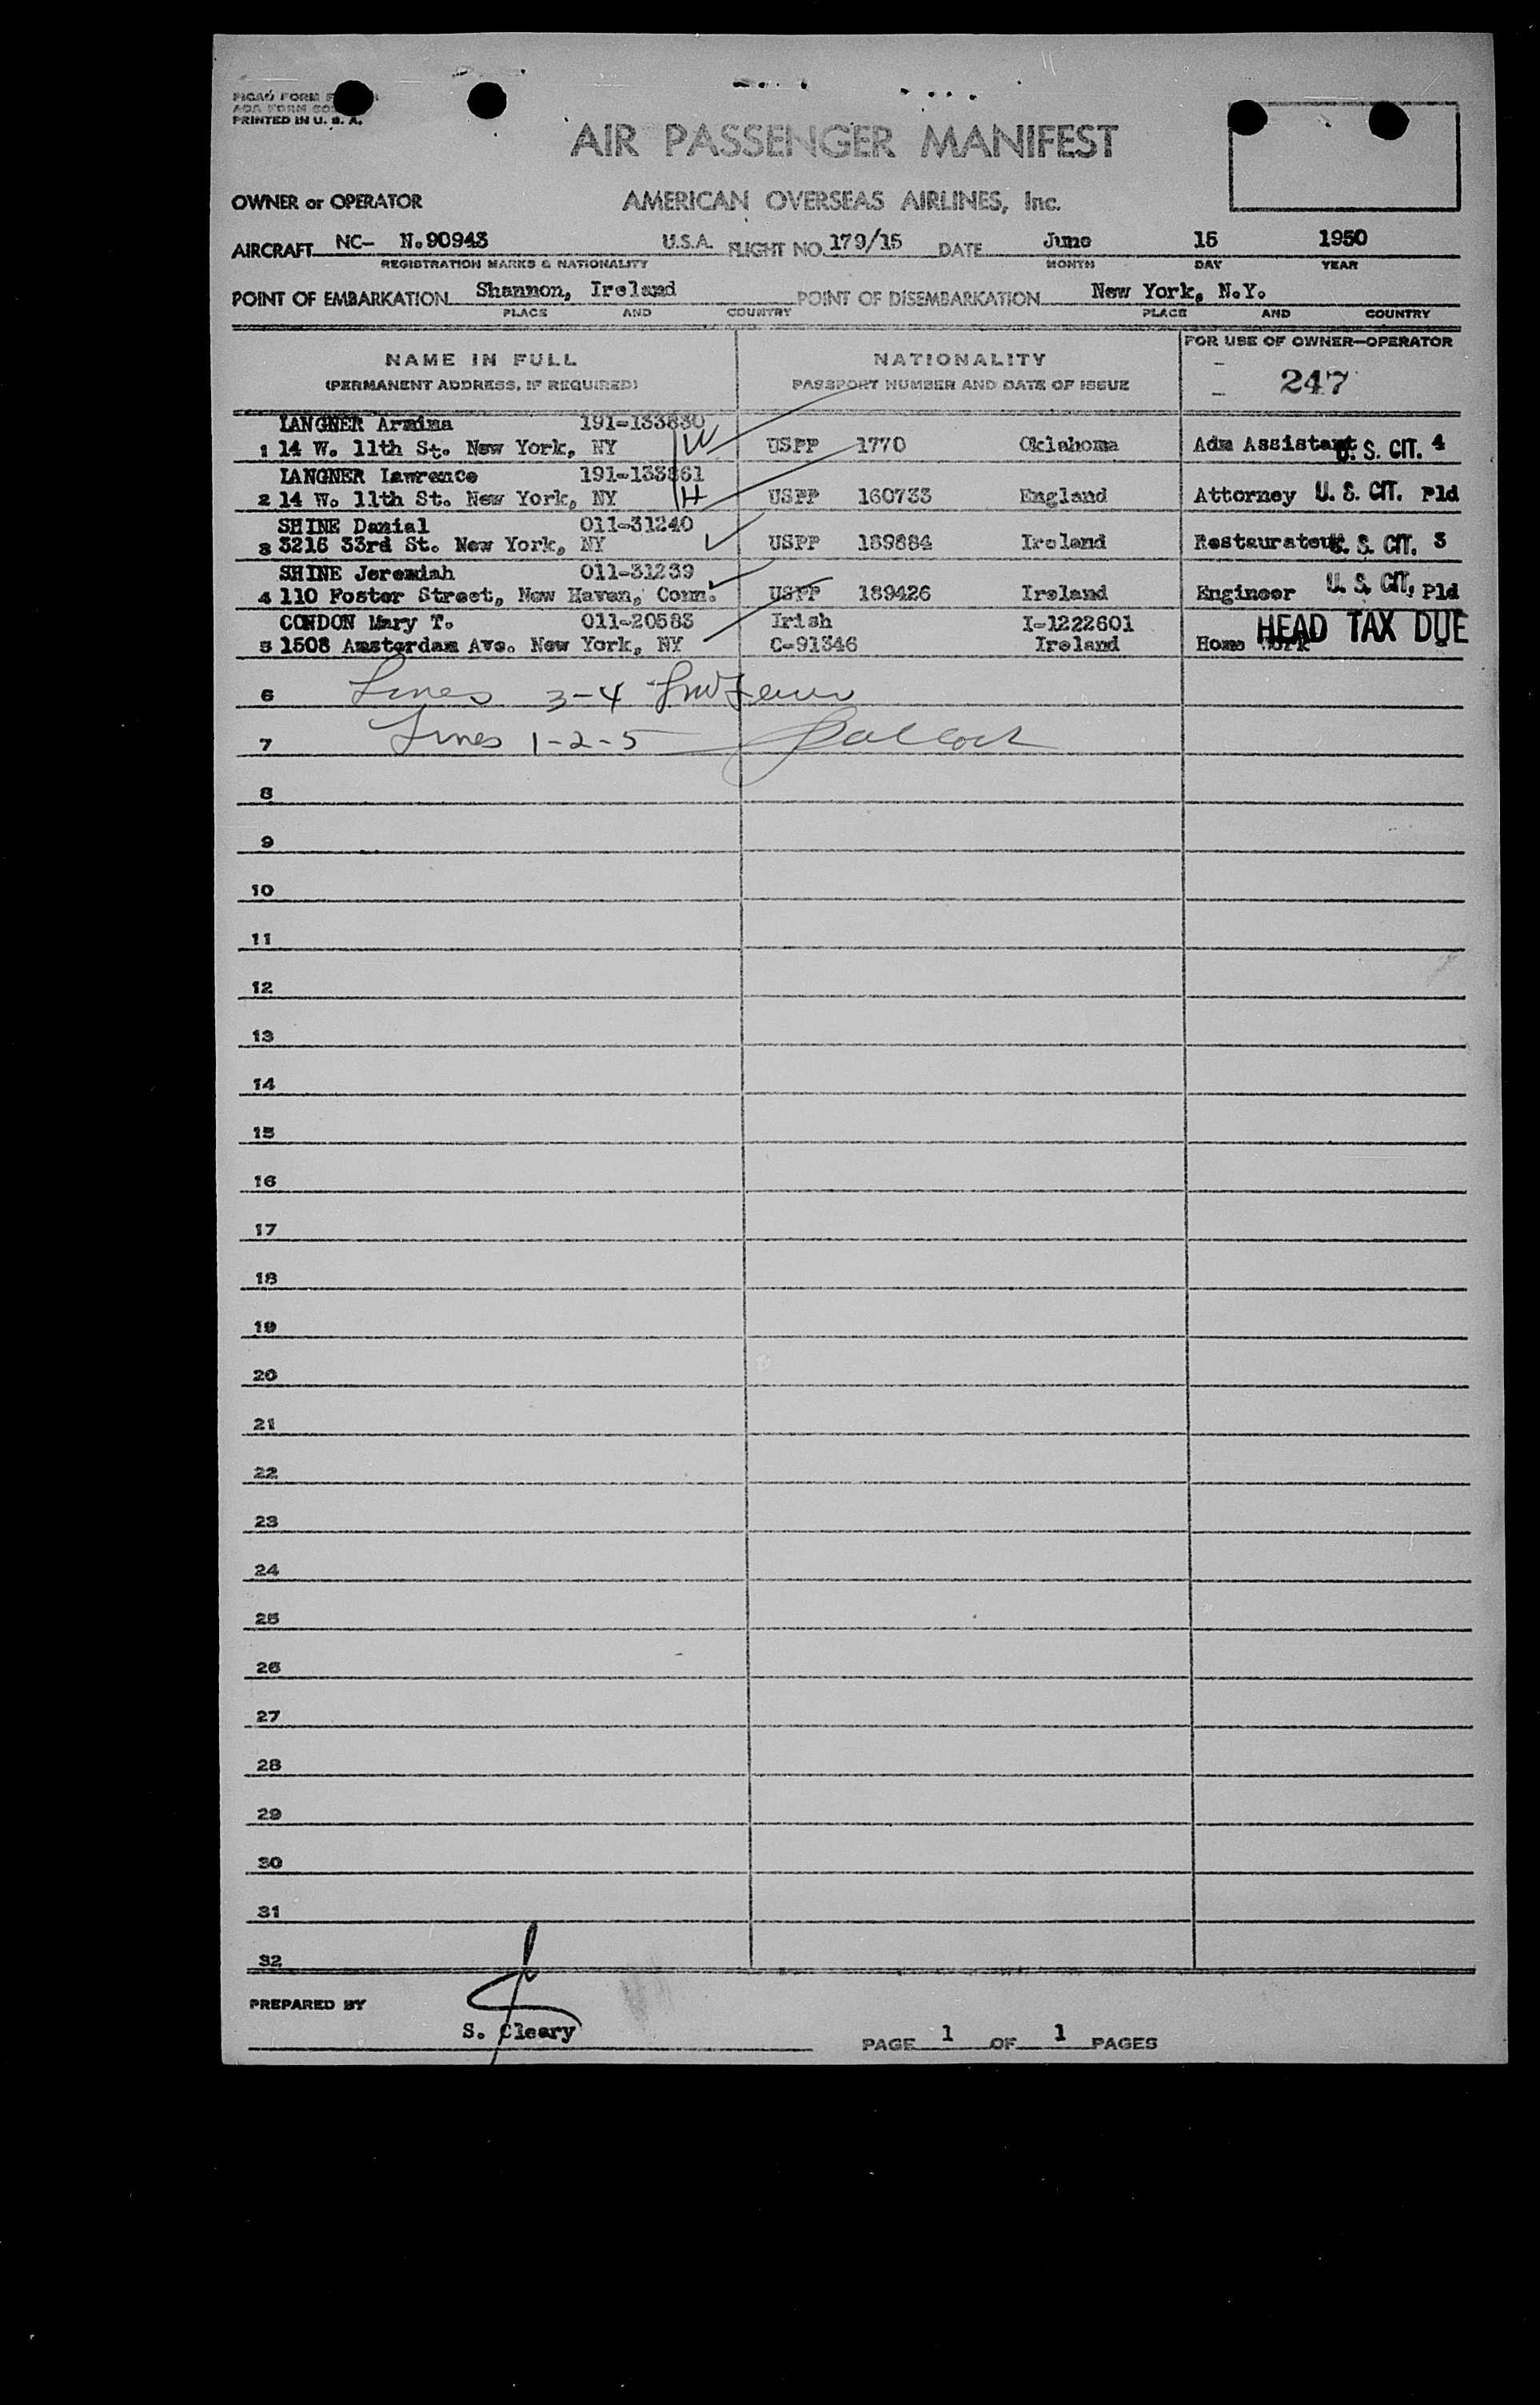 PRINTED IN U. S. A.
AIR PASSENGER MANIFEST
OWNER or OPERATOR AMERICAN OVERSEAS AIRLINES, Inc.
AIRCRAFT NC- N.90943 U.S.A. FLIGHT NO. 179/15 DATE June 15 1950
REGISTRATION MARKS & NATIONALITY MONTH DAY YEAR
POINT OF EMBARKATION Shannon, Ireland POINT OF DISEMBARKATION New York, N.Y.
PLACE AND COUNTRY PLACE AND COUNTRY
NAME IN FULL NATIONALITY FOR USE OF OWNER—OPERATOR
(PERMANENT ADDRESS, IF REQUIRED) PASSPORT NUMBER AND DATE OF ISSUE 247
LANGNER Armina 191-133830
1 14 W. 11th St. New York, NY W USPP 1770 Oklahoma Adm Assistant U. S. CIT. 4
LANGNER Lawrence 191-133861
2 14 W. 11th St. New York, NY H USPP 160733 England Attorney U. S. CIT. Pld
SHINE Danial 011-31240
3 3216 33rd St. New York, NY USPP 189884 Ireland Restaurateur U. S. CIT. 3
SHINE Jeremiah 011-31239
4 110 Foster Street, New Haven, Conn. USPP 189426 Ireland Engineer U. S. CIT. Pld
CONDON Mary T. 011-20583 Irish I-1222601
5 1508 Amsterdam Ave. New York, NY C-91346 Ireland Home Work HEAD TAX DUE
6 Lines 3-4
7 Lines 1-2-5
8
9
10
11
12
13
14
15
16
17
18
19
20
21
22
23
24
25
26
27
28
29
30
31
32
PREPARED BY
S. Cleary
PAGE 1 OF 1 PAGES